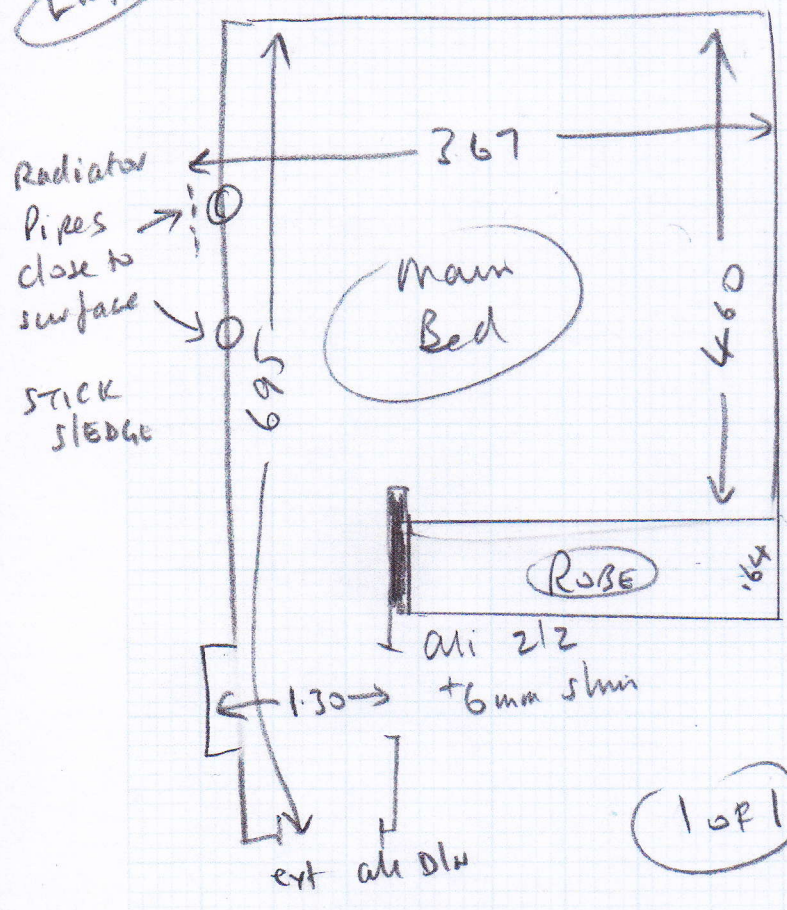 3.67
Radiator
Pipes
close to
surface
STICK
S/EDGE
Main
Bed
4.60
6.95
ROBE
.64
ali 2/2
+6mm
1.30
1 OF 1
ext ali D/N